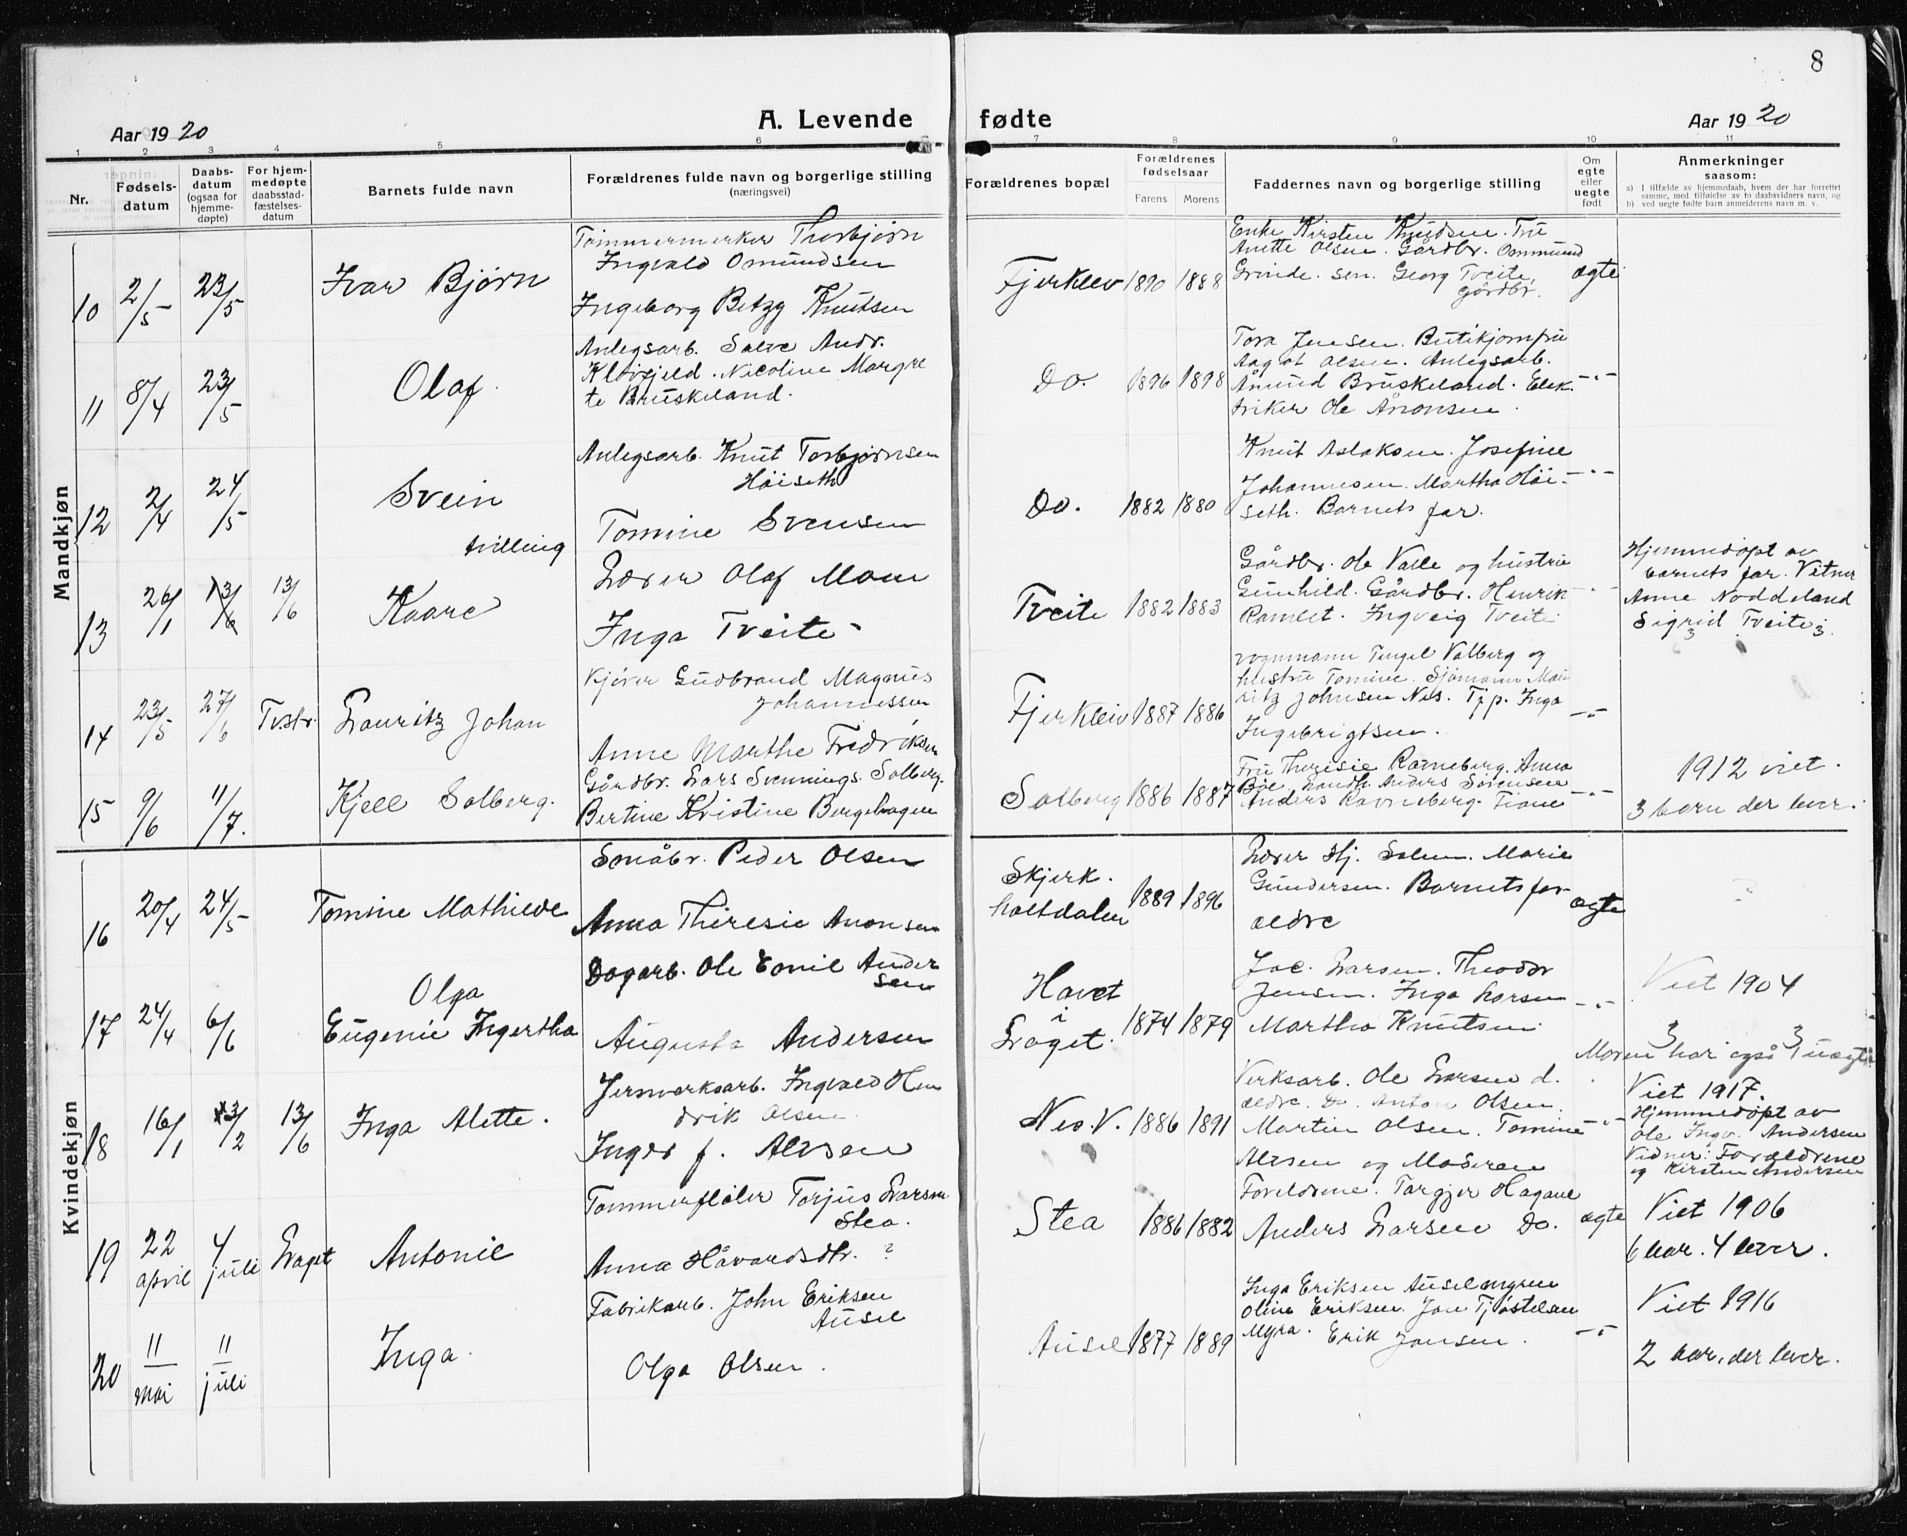 8
Aar 1920
A. Levende
fødte
Aar 1920
1 2 3 4 5 6 7 8 9 10 11
Nr.
Fødsels-
datum
Daabs-
datum
(ogsaa for
hjemme-
døpte)
For hjem-
medøpte
daabsstad-
fæstelses-
datum
Barnets fulde navn
Forældrenes fulde navn og borgerlige stilling
(næringsvei)
Forældrenes bopæl
Forældrenes
fødselsaar
Farens Morens
Faddernes navn og borgerlige stilling
Om
egte
eller
uegte
født
Anmerkninger
saasom:
a) I tilfælde av hjemmedaab, hvem der har forrettet
samme, med tilføielse av to daabsvidners navn, og
b) ved uegte fødte barn anmelderens navn m. v.
Mandkjøn
10 2/5 23/5 Ivar Bjørn
Tømmermerker Thorbjørn
Ingvald Omundsen
Ingeborg Betzy Knutsen
Fjerkleiv 1890 1888
Enke Kirsten Knudsen. Fru
Anette Olsen. Gårdbr. Ommund
Grinde. sen. Georg Tveite
gårdbr.
ægte
11 8/4 23/5 Olaf.
Anlegsarb. Salve Andr.
Kløvfjeld. Nicoline Margre
te Bruskeland.
Do. 1896 1898
Tora Jensen. Butikjomfru
Aagot Olsen. Anlegsarb.
Åmund Bruskeland. Elek-
triker Ole Ånonsen.
-"-
12 2/4 24/5 Svein
tvilling
Anlegsarb. Knut Torbjørnsen
Høiseth
Tomine Svensen
Do. 1882 1880
Knut Aslaksen. Josefine
Johannesen. Martha Høi-
seth. Barnets far.
-"-
13 26/1 13/6 13/6 Kaare
Lærer Olaf Moen
Inga Tveite
Tveite 1882 1883
Gårdbr. Ole Valle og hustru
Gunhild. Gårdbr. Henrik
Ramlet. Ingveig Tveite
-"-
Hjemmedøpt av
barnets far. Vitner
Anne Noddeland
Sigrid Tveite
14 23/5 27/6 Tvstr Lauritz Johan
Kjører Gudbrand Magnus
Johannessen
Anne Marthe Fredriksen
Fjerkleiv 1887 1886
vognmann Tengel Valberg og
hustru Tomine. Sjømann Mau
ritz Johnsen Nes. Tjp. Inga
Ingebrigtsen.
-"-
15 9/6 11/7. Kjell Solberg.
Gårdbr. Lars Svennings. Solberg.
Bertine Kristine Bergehagen
Solberg 1886 1887
Fru Theresie Ravneberg. Anna
Bøe. Landh. Anders Sørensen
Anders Ravneberg. Tiane
-"-
1912 viet.
3 barn der lever.
Kvindekjøn
16 20/4 24/5 Tomine Mathilde
Småbr. Peder Olsen
Anna Theresie Anonsen
Skjerk.
holtdalen 1889 1896
Lærer Hj. Solem. Marie
Gundersen. Barnets for-
ældre
ægte
17 24/4 6/6 Olga
Eugenie Ingertha
Dagarb. Ole Emil Ander
sen
Augusta Andersen
Havet
i
Laget. 1874 1879
Jac. Larsen. Theodor
Jensen. Inga Larsen
Martha Knutsen
-"-
Viet 1904
3 3
Moren har også 1 uægte
18 16/1 13/2 13/6 Inga Alette.
Jernverksarb. Ingvald Hen
drik Olsen
Inger f. Alvsen
Nes V. 1886 1891
Verksarb. Ole Larsen d.
ældre. Do. Anton Olsen
Martin Olsen. Tomine
Alvsen og Moderen
-"-
Viet 1917.
Hjemmedøpt av
Ole Ingv. Andersen
Vidner: Forældrene
og Kirsten Andersen
19 22 april 4 juli Laget Antonie
Tømmerfløter Torjus Larsen
Stea.
Anna Håvardsdtr. ?
Stea 1886 1882
Foreldrene. Targjer Hagane
Anders Larsen Do.
ægte
Viet 1906
6 bar. 4 lever.
20 11 mai 11 juli Inga.
Fabrikarb. John Eriksen
Ausel
Olga Olsen.
Ausel 1877 1889
Inga Eriksen Auselmyren
Oline Eriksen. Jon Tjøstelsen
Myra. Erik Jonsen.
-"-
Viet 1916
2 bar. der lever.